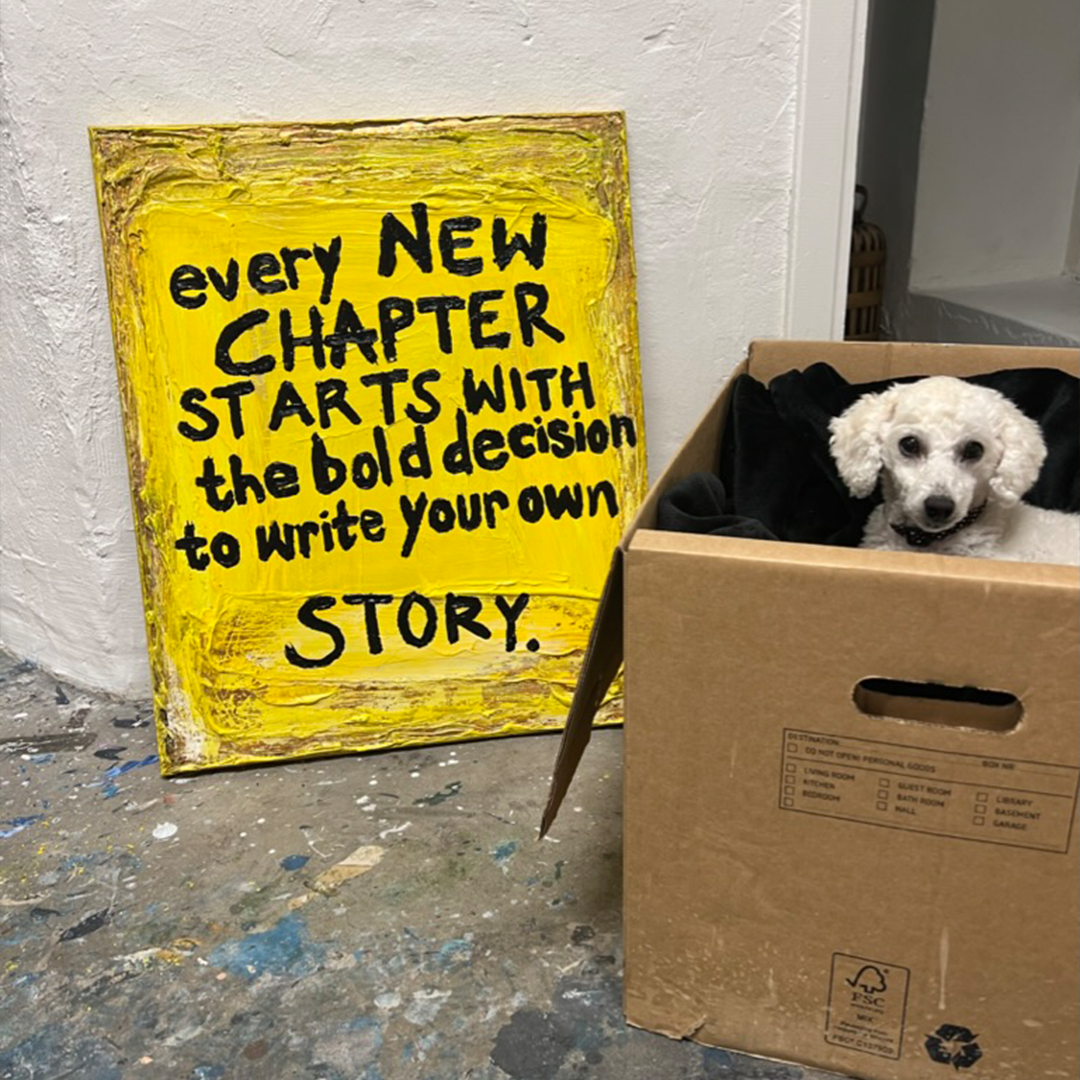 every NEW
CHAPTER
STARTS WITH
the bold decision
to write your own
STORY.
DESTINATION:
DO NOT OPEN! PERSONAL GOODS
BOX NR
LIVING ROOM
KITCHEN
BEDROOM
GUEST ROOM
BATH ROOM
HALL
LIBRARY
BASEMENT
GARAGE
FSC
MIX